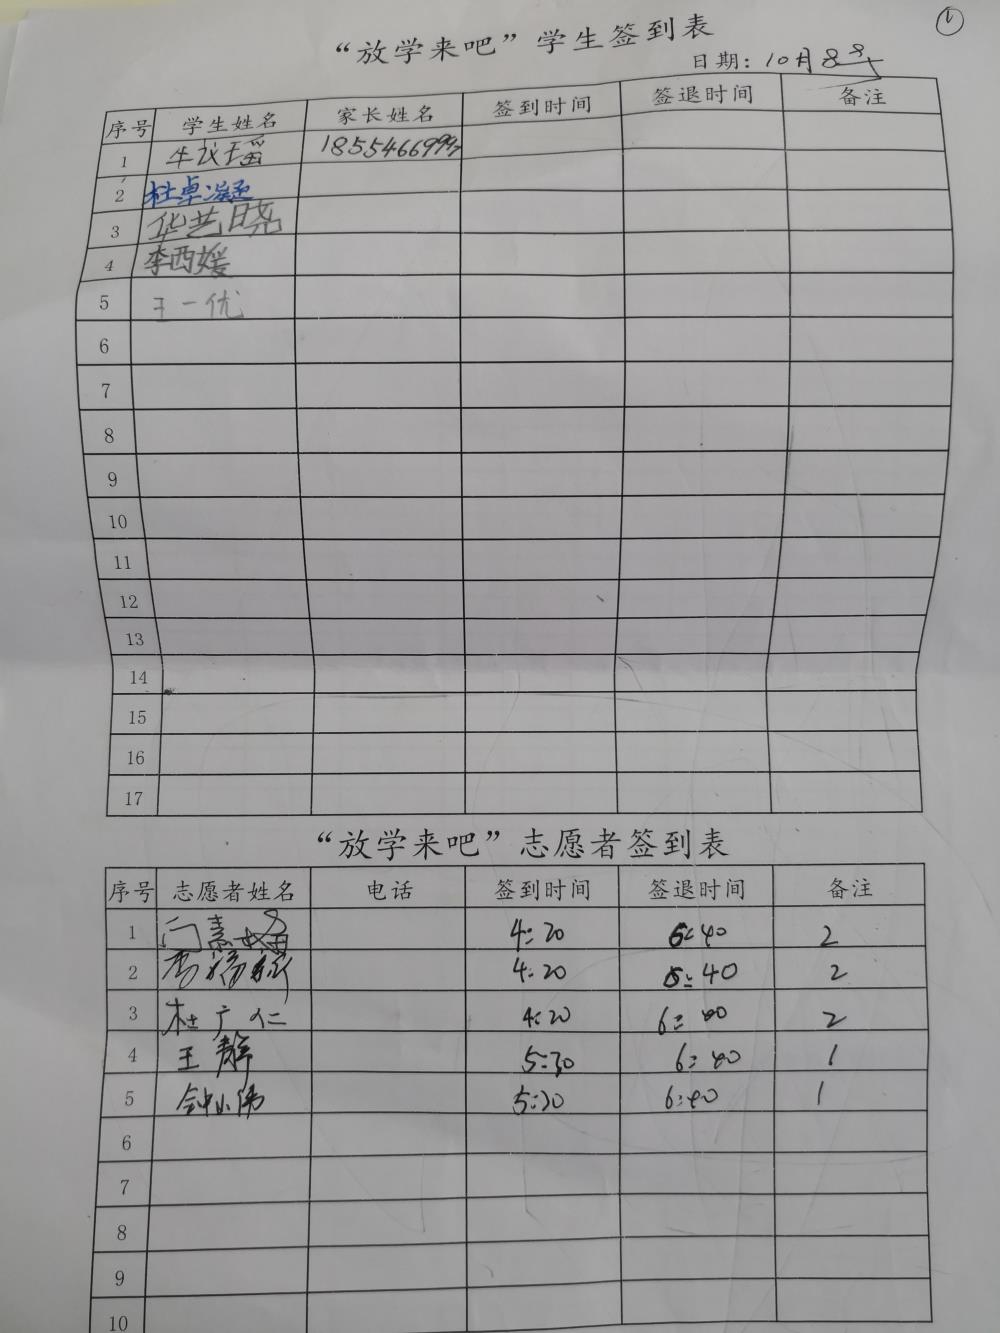 “放学来吧”学生签到表
日期：10月8号
序号 学生姓名 家长姓名 签到时间 签退时间 备注
1 牛议瑶
2 杜卓凝
3 华艺晓
4 李西媛
5 王一优
6
7
8
9
10
11
12
13
14
15
16
17
“放学来吧”志愿者签到表
序号 志愿者姓名 电话 签到时间 签退时间 备注
1 4:20 6:40 2
2 4:20 6:40 2
3 杜广仁 4:20 6:40 2
4 王静 5:30 6:40 1
5 钟小伟 5:30 6:40 1
6
7
8
9
10